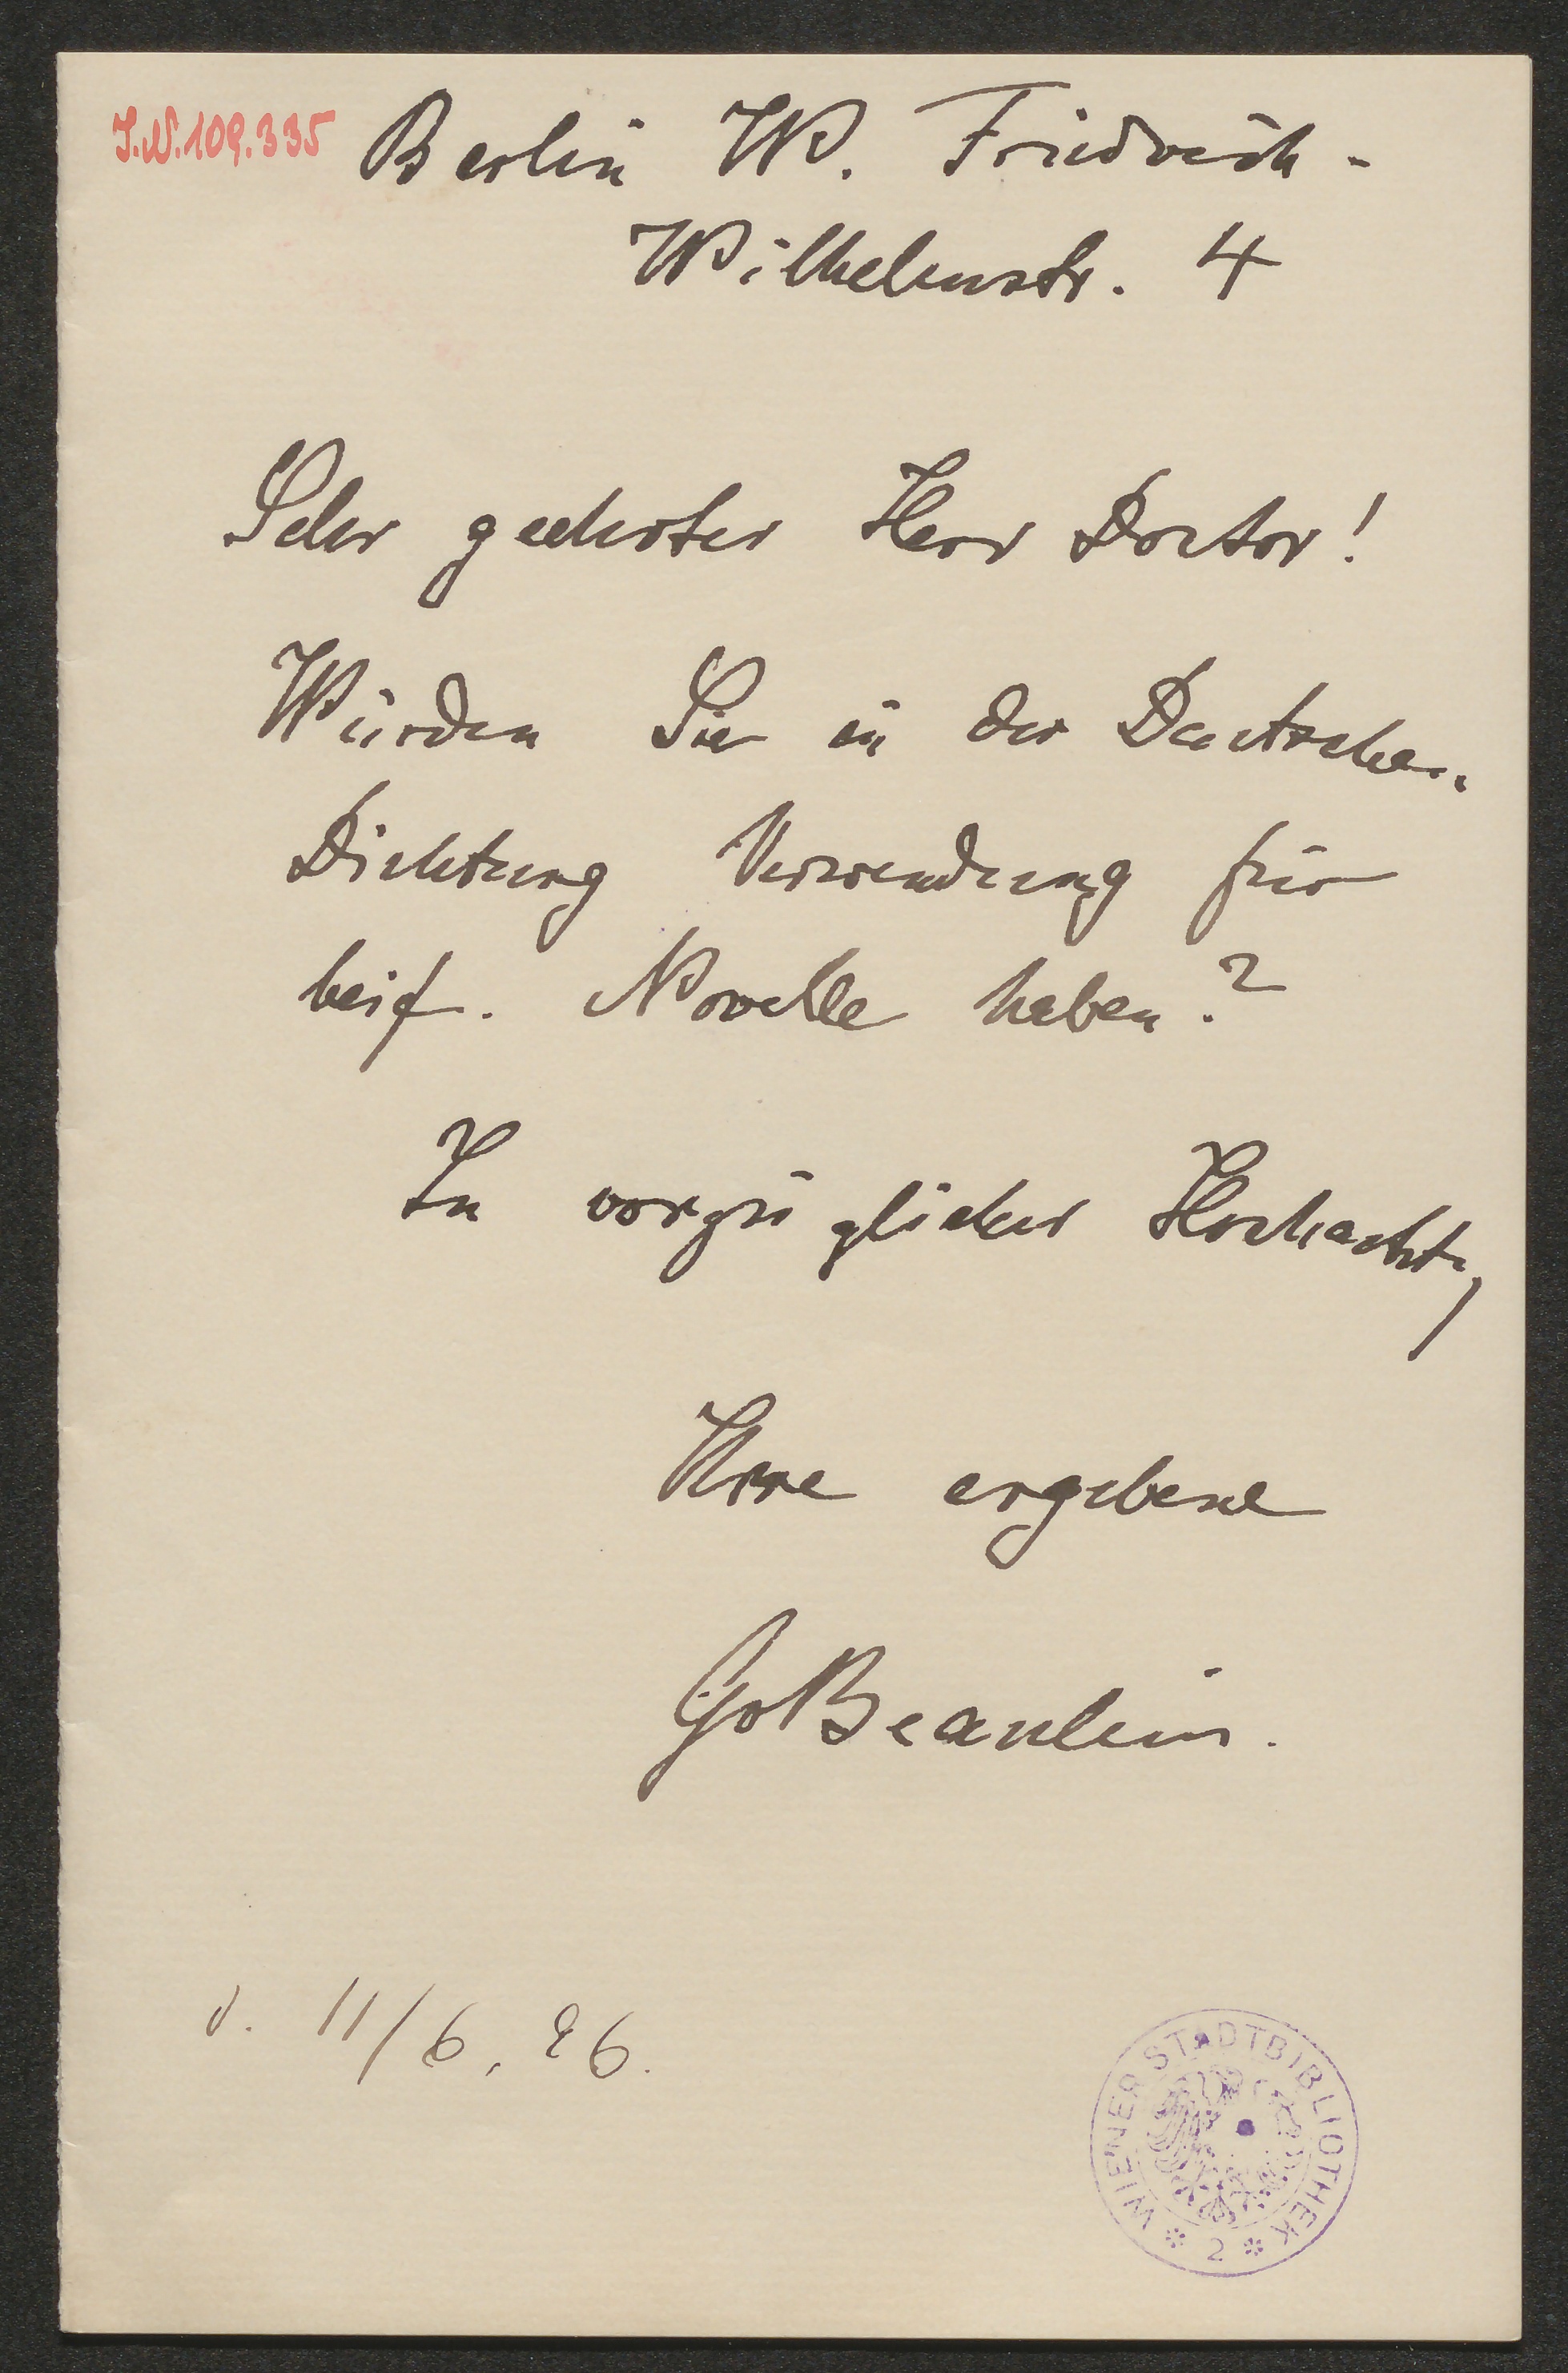 I.N.109.335
Berlin W. Friedrich-
Wilhelmstr. 4
Sehr geehrter Herr Doctor!
Würden Sie in der Deutschen
Dichtung Verwendung für
beif. Novelle haben?
In vorzüglicher Hochacht,
Ihre ergebene
GvBeaulieu.
d. 11/6. 96.
WIENER STADTBIBLIOTHEK
* 2 *